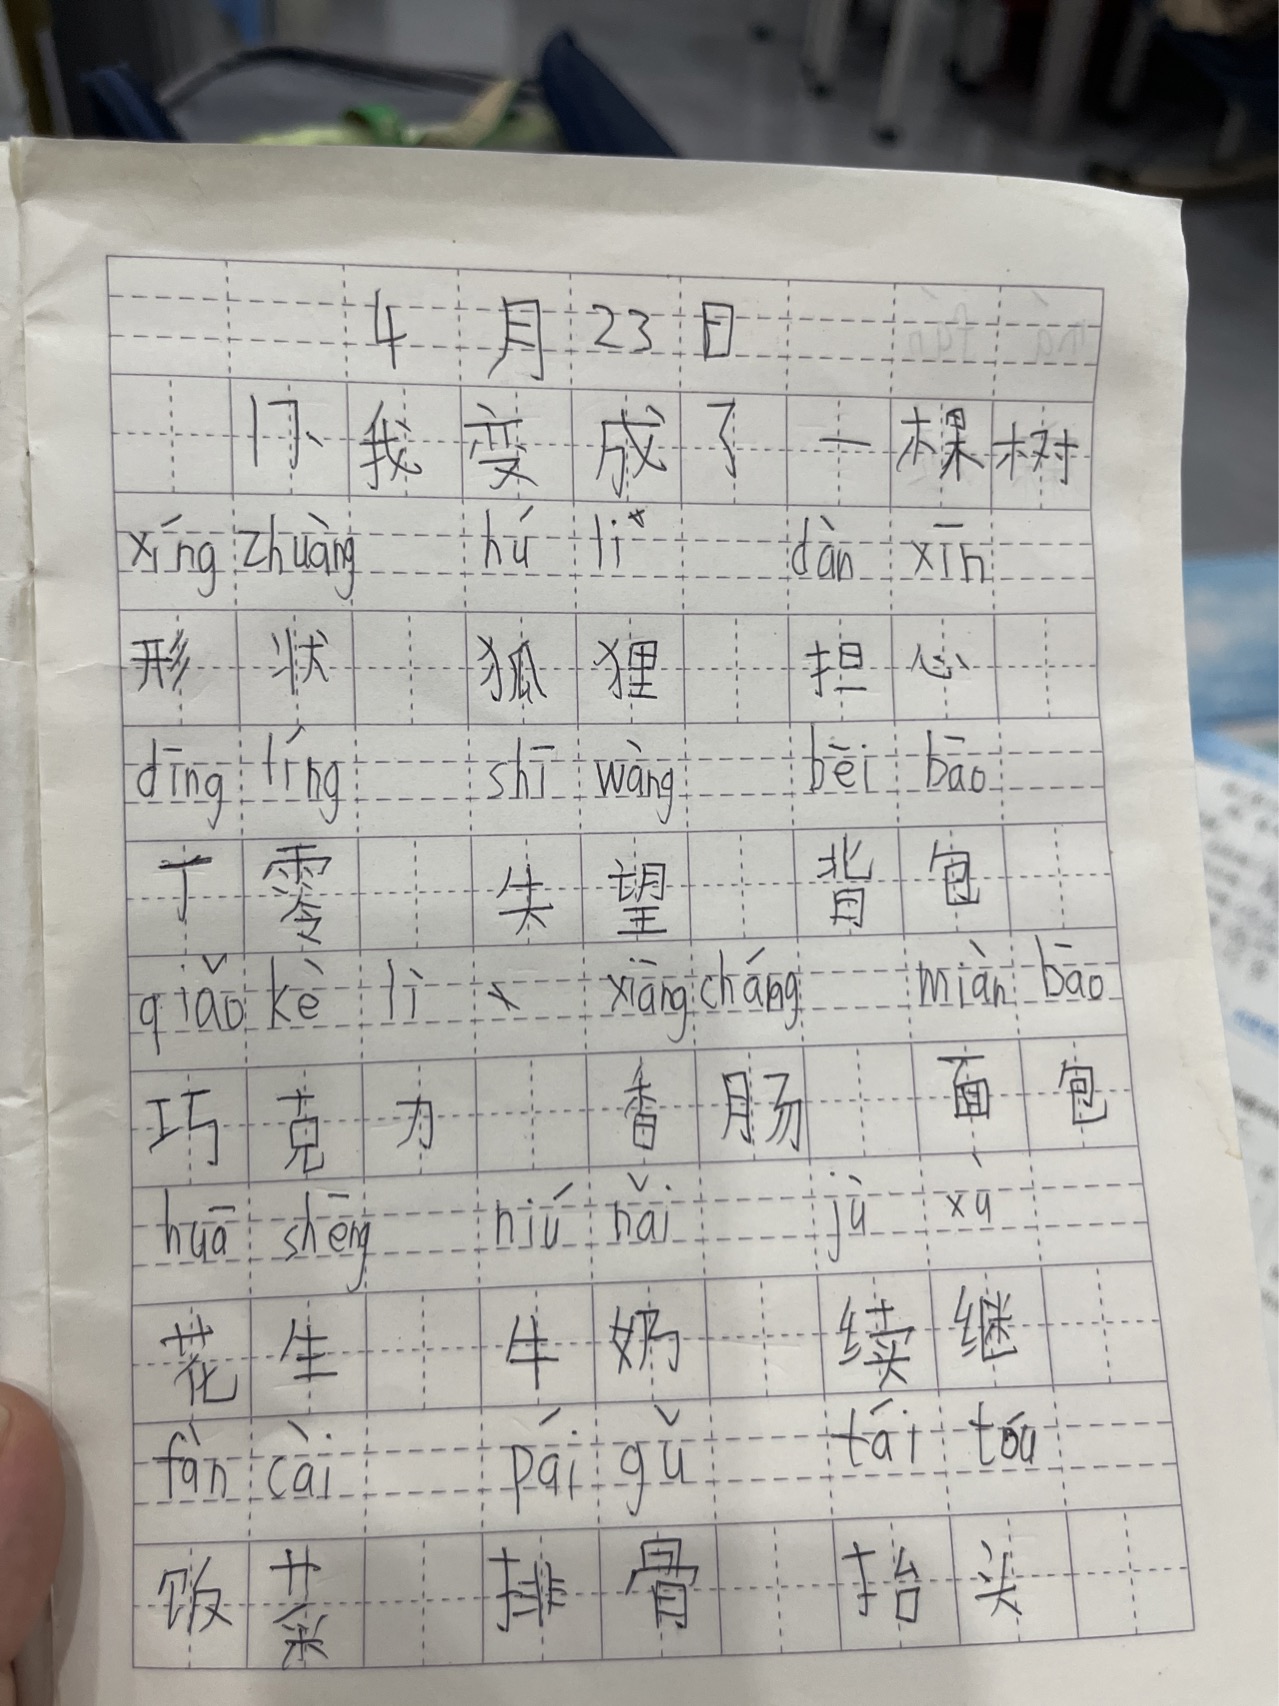 4月23日
17、我变成了一棵树
xíng zhuàng hú li dàn xīn
形状 狐狸 担心
dīng líng shī wàng bēi bāo
丁零 失望 背包
qiǎo kè lì xiāng cháng miàn bāo
巧克力 香肠 面包
huā shēng niú nǎi jù xù
花生 牛奶 续继
fàn cài pái gǔ tái tóu
饭菜 排骨 抬头